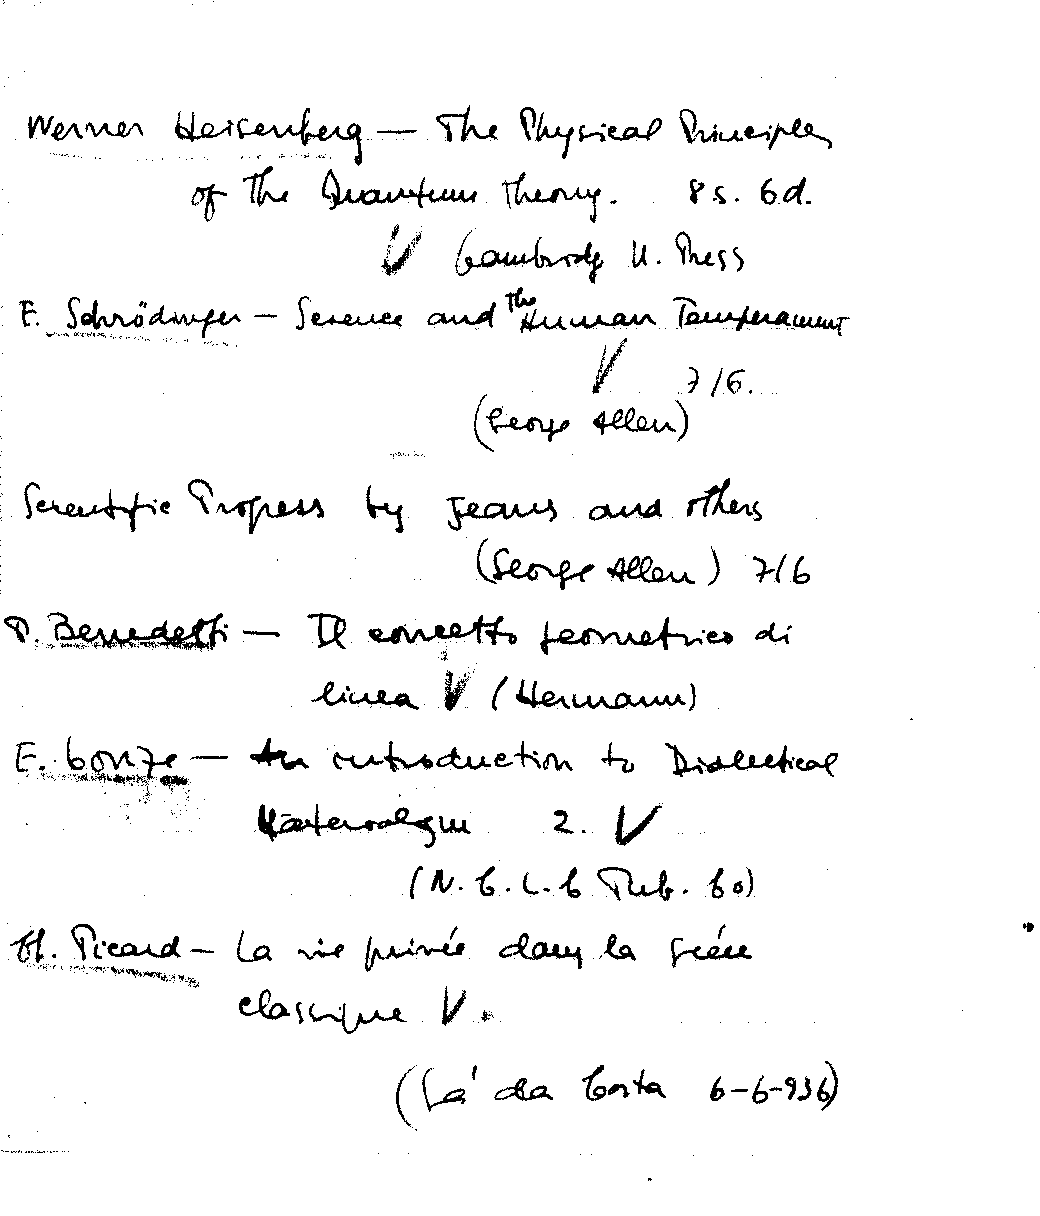 Werner Heisenberg — The Physical Principles
of the Quantum Theory. 8s. 6d.
V Cambridg U. Press
E. Schrödinger — Science and the Human Temperament
V 7/6.
(George Allen)
Scientific Progress by Jeans and others
(George Allen) 7/6
P. Benedetti — Il concetto geometrico di
linea V (Hermann)
E. Conze — An introduction to Dialectical
Materialism 2. V
(N.C.L.C Pub. Co)
Ch. Picard — La vie privée dans la Grèce
classique V.
(Sá da Costa 6-6-936)